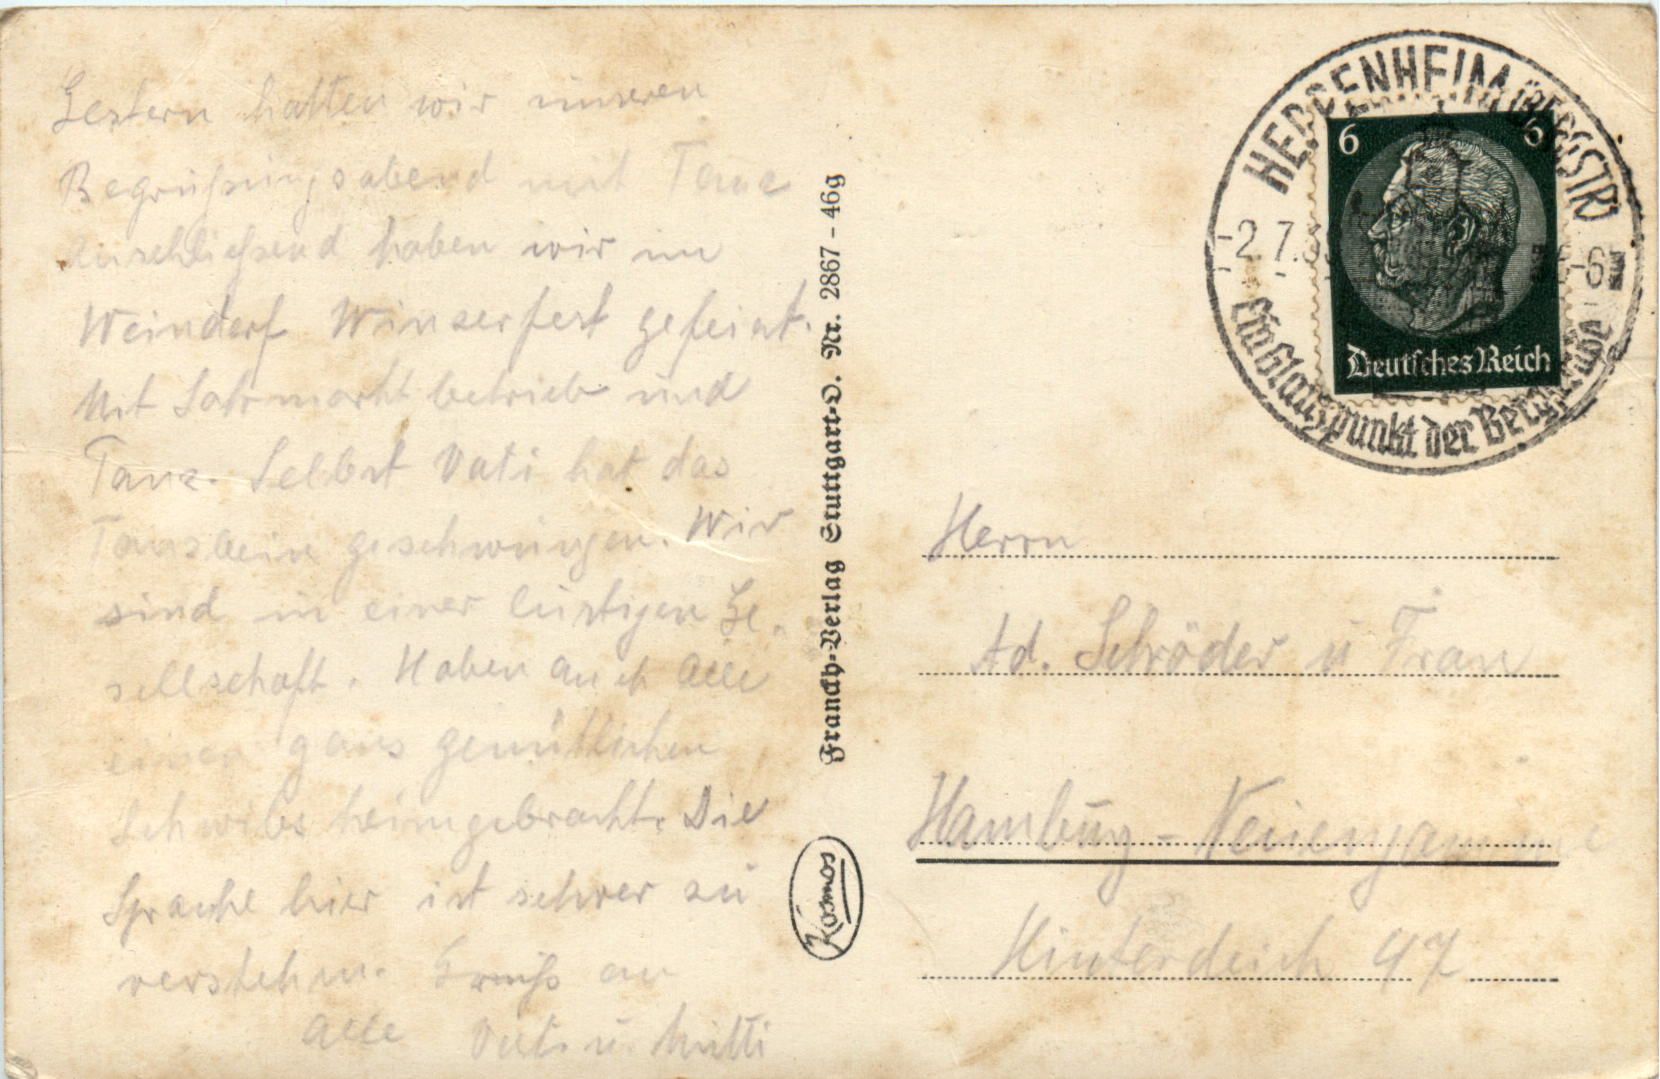 Gestern hatten wir unseren
Begrüßungsabend mit Tanz
anschließend haben wir im
Weindorf Winzerfest gefeiert.
Mit Jahrmarktbetrieb und
Tanz. Selbst Vati hat das
Tanzbein geschwungen. Wir
sind in einer lustigen Ge-
sellschaft. Haben auch alle
einen ganz gemütlichen
Schwibs heimgebracht. Die
Sprache hier ist schwer zu
verstehn. Gruß an
alle Vati u Mutti
Franckh-Verlag Stuttgart-O. Nr. 2867 - 46g
Kosmos
HEPPENHEIM (BERGSTR)
-2.7.3
Ein Glanzpunkt der Bergstraße
6 6
Deutsches Reich
Herrn
Ad. Schröder u Frau
Hamburg-Neuengamme
Hinterdeich 47